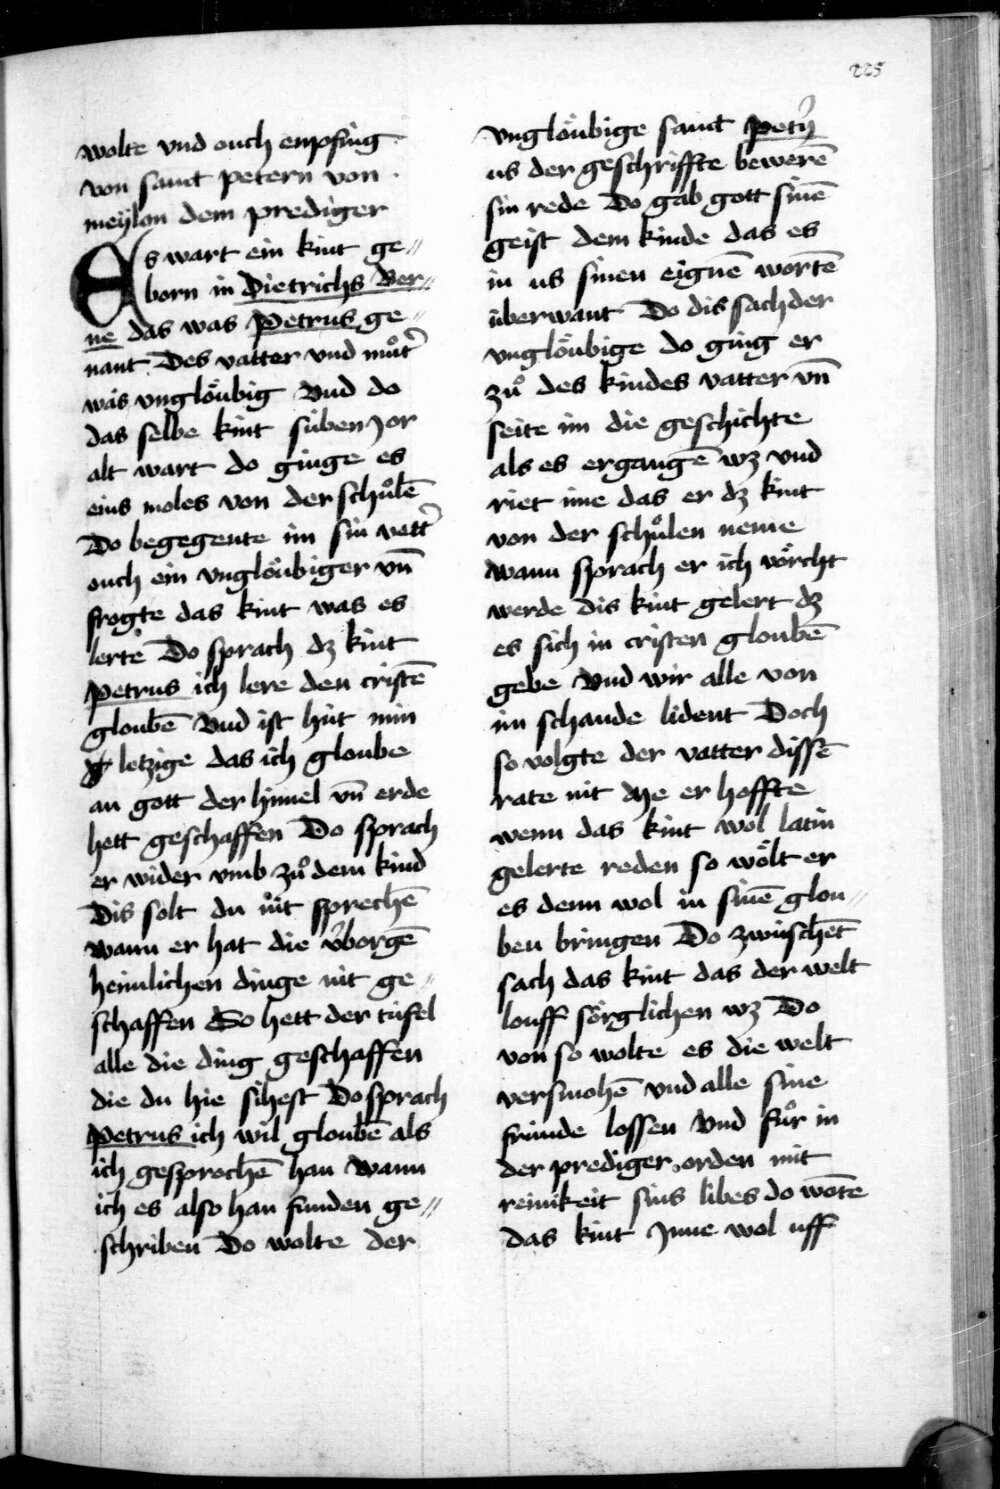 225
wolte vnd ouch empfing
von sanct petern von
meylon dem prediger
Es wart ein kint ge〃
born in Dietrichs Ber〃
ne das was Petrus ge〃
nant Des vatter vnd muͦt̉
was vngloͤubig Vnd do
das selbe kint siben Jor
alt wart do ginge es
eins moles von der schuͦlē
Do begegente im sin vett̉
ouch ein vngloͤubiger vn̄
frogte das kint was es
lerte Do sprach dz kint
Petrus ich lere den cristē
gloubē Vnd ist hút min
letzige das ich gloube
an gott der himel vn̄ erde
hett geschaffen Do sprach
er wider vmb zuͦ dem kind
Dis solt du nút sprechē
wann er hat die v̉borgē
heimlichen dinge nit ge〃
schaffen So hett der túfel
alle die ding geschaffen
die du hie sihest Do sprach
Petrus ich wil gloubē als
ich gesprochē han wann
ich es also han funden ge〃
schriben Do wolte der
vngloͤubige sanct Petr̉
us der geschriffte bewerē
sin rede Do gab gott sinē
geist dem kinde das es
in us sinen eignē wortē
úberwant Do dis sach der
vngloͤubige do ging er
zuͦ des kindes vatter vn̄
seite im die geschichte
als es ergangē wz vnd
riet ime das er dz kint
von der schuͦlen neme
wann sprach er ich voͤrcht
werde dis kint gelert dz
es sich in cristen gloubē
gebe Vnd wir alle von
im schande lident Doch
so volgte der vatter dissē
rate nit Me er hoffte
wenn das kint wol latin
gelerte reden so woͤlt er
es denn wol in sinē glou〃
ben bringen Do zwúschēt
sach das kint das der welt
louff soͤrglichen wz Do
von so wolte es die welt
versmohē vnd alle sine
frúnde lossen Vnd fuͦr in
der prediger orden mit
reinikeit sins libes do wōte
das kint Jnne wol uff